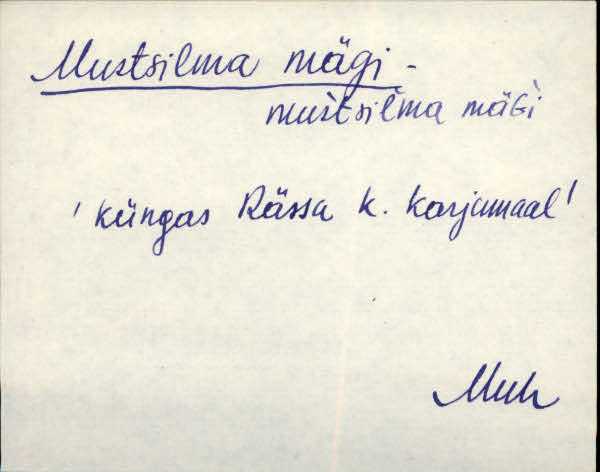 Mustsilma mägi -
mus̀tsil̀ma mäGì
'küngas Rässa k. karjamaal'
Muh